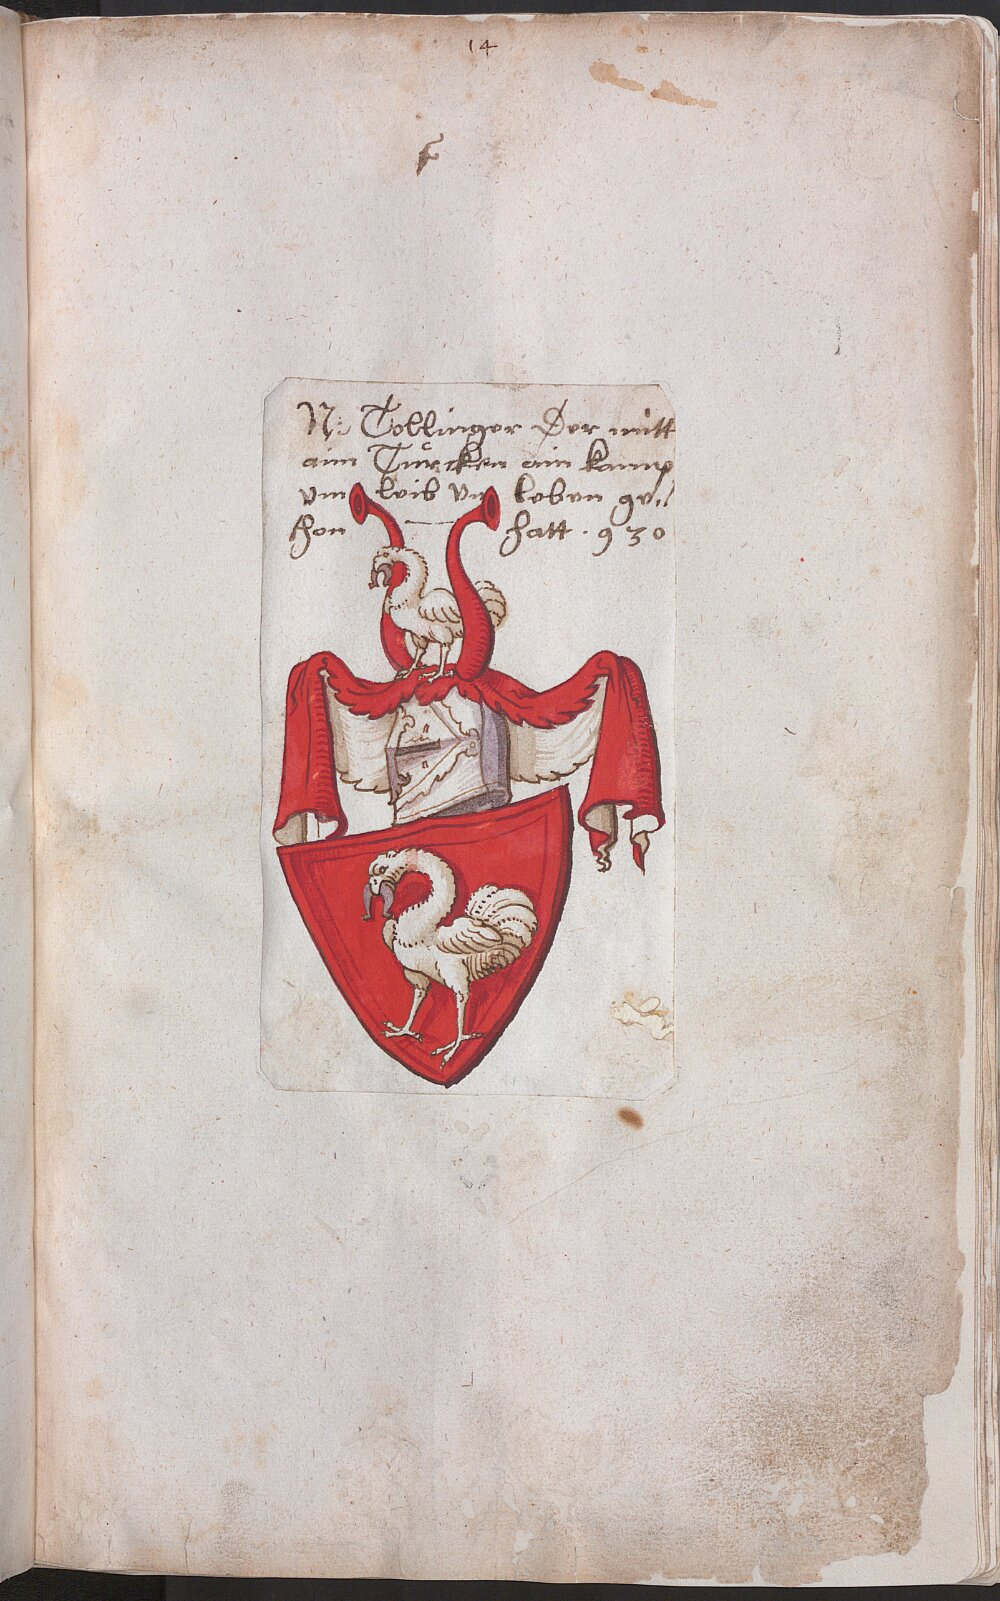 14
N: Tollinger Der mitt
aim Türcken ain kamp
vm leib vn leben ge//
thon hatt · 930